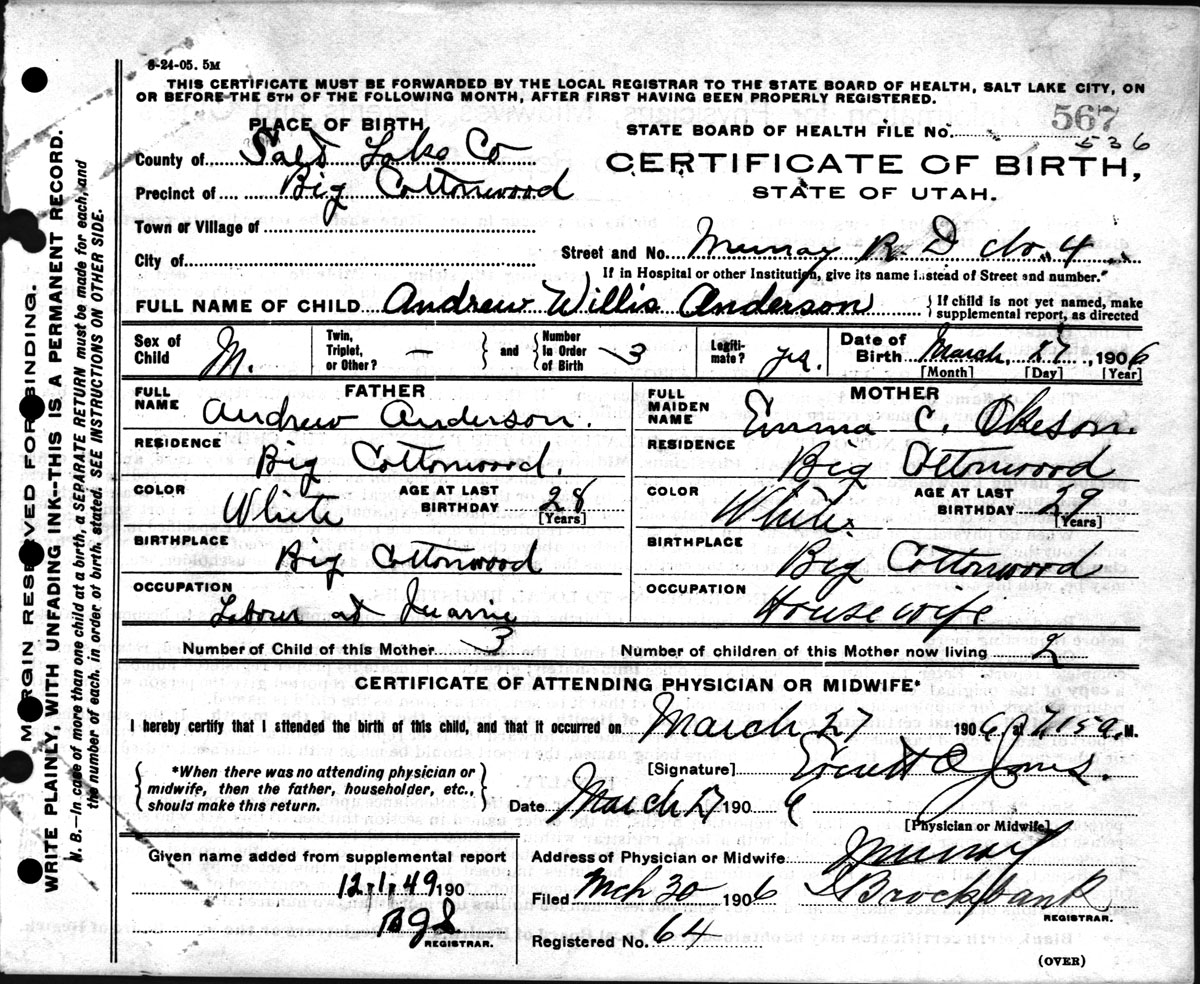 8-24-05. 5M
THIS CERTIFICATE MUST BE FORWARDED BY THE LOCAL REGISTRAR TO THE STATE BOARD OF HEALTH, SALT LAKE CITY, ON
OR BEFORE THE 5TH OF THE FOLLOWING MONTH, AFTER FIRST HAVING BEEN PROPERLY REGISTERED.
PLACE OF BIRTH
STATE BOARD OF HEALTH FILE NO. 567
536
County of Salt Lake Co
CERTIFICATE OF BIRTH,
Precinct of Big Cottonwood
STATE OF UTAH.
Town or Village of
City of
Street and No. Murray R. D No. 4
If in Hospital or other Institution, give its name instead of Street and number."
FULL NAME OF CHILD Andrew Willis Anderson
{ If child is not yet named, make
supplemental report, as directed
Sex of Child M.
Twin, Triplet, or Other? —
} and { Number in Order of Birth 3
Legitimate? yes.
Date of Birth March 27, 1906
[Month] [Day] [Year]
FATHER
FULL NAME Andrew Anderson.
RESIDENCE Big Cottonwood
COLOR White
AGE AT LAST BIRTHDAY 28
[Years]
BIRTHPLACE Big Cottonwood
OCCUPATION Labour at Quarrie
MOTHER
FULL MAIDEN NAME Emma C. Okeson.
RESIDENCE Big Cottonwood
COLOR White
AGE AT LAST BIRTHDAY 29
[Years]
BIRTHPLACE Big Cottonwood
OCCUPATION Housewife
Number of Child of this Mother 3
Number of children of this Mother now living 2
CERTIFICATE OF ATTENDING PHYSICIAN OR MIDWIFE*
I hereby certify that I attended the birth of this child, and that it occurred on March 27 1906, at M.
{ *When there was no attending physician or
midwife, then the father, householder, etc.,
should make this return. }
[Signature] Jones.
Date March 27 1906
[Physician or Midwife]
Given name added from supplemental report
12-1-49 190
REGISTRAR.
Address of Physician or Midwife Murray
Filed Mch 30 1906
Brockbank
REGISTRAR.
Registered No. 64
(OVER)
MARGIN RESERVED FOR BINDING.
WRITE PLAINLY, WITH UNFADING INK--THIS IS A PERMANENT RECORD.
N. B.—In case of more than one child at a birth, a SEPARATE RETURN must be made for each, and
the number of each, in order of birth, stated. SEE INSTRUCTIONS ON OTHER SIDE.